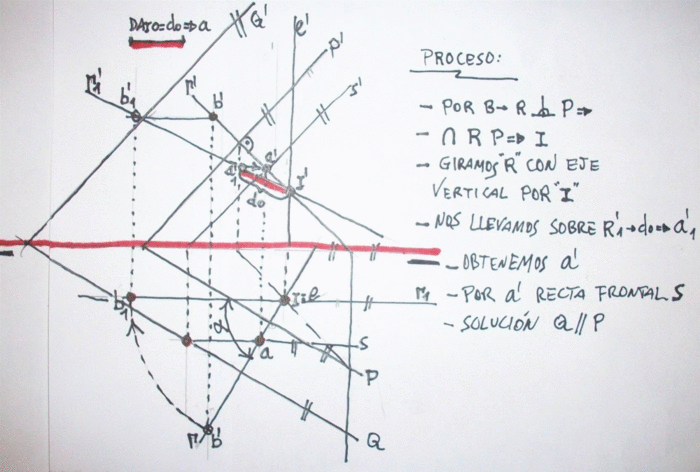 DATO=do=>a
Q'
e'
P'
s'
r'1
r'
b'1
b'
a'1
a'
I'
do
b1
I≡e
r1
α
a
s
P
r
b'
Q
PROCESO:
- POR B→ R ⊥ P=>
- ∩ R P=> I
- GIRAMOS "R" CON EJE
VERTICAL POR "I"
- NOS LLEVAMOS SOBRE R'1→do=>a'1
- OBTENEMOS a'
- POR a' RECTA FRONTAL S
- SOLUCIÓN Q // P